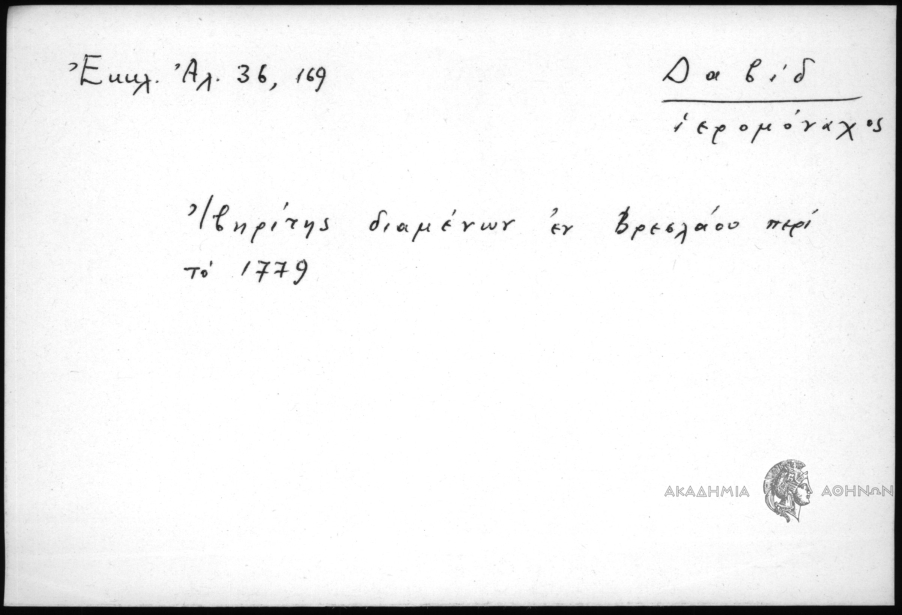 Ἐκκλ. Ἀλ. 36, 169
Δαβίδ
ἱερομόναχος
Ἰβηρίτης διαμένων ἐν Βρεσλάου περί
τό 1779
ΑΚΑΔΗΜΙΑ ΑΘΗΝΩΝ